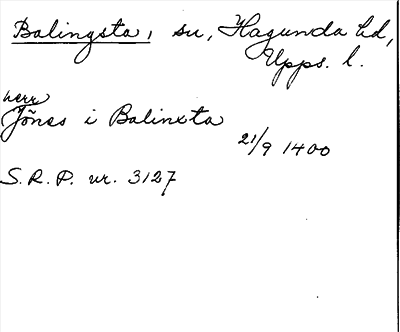 Balingsta, sn, Hagunda hd,
Upps. l.
herr
Jönes i Balinxta
21/9 1400
S.R.P. nr. 3127